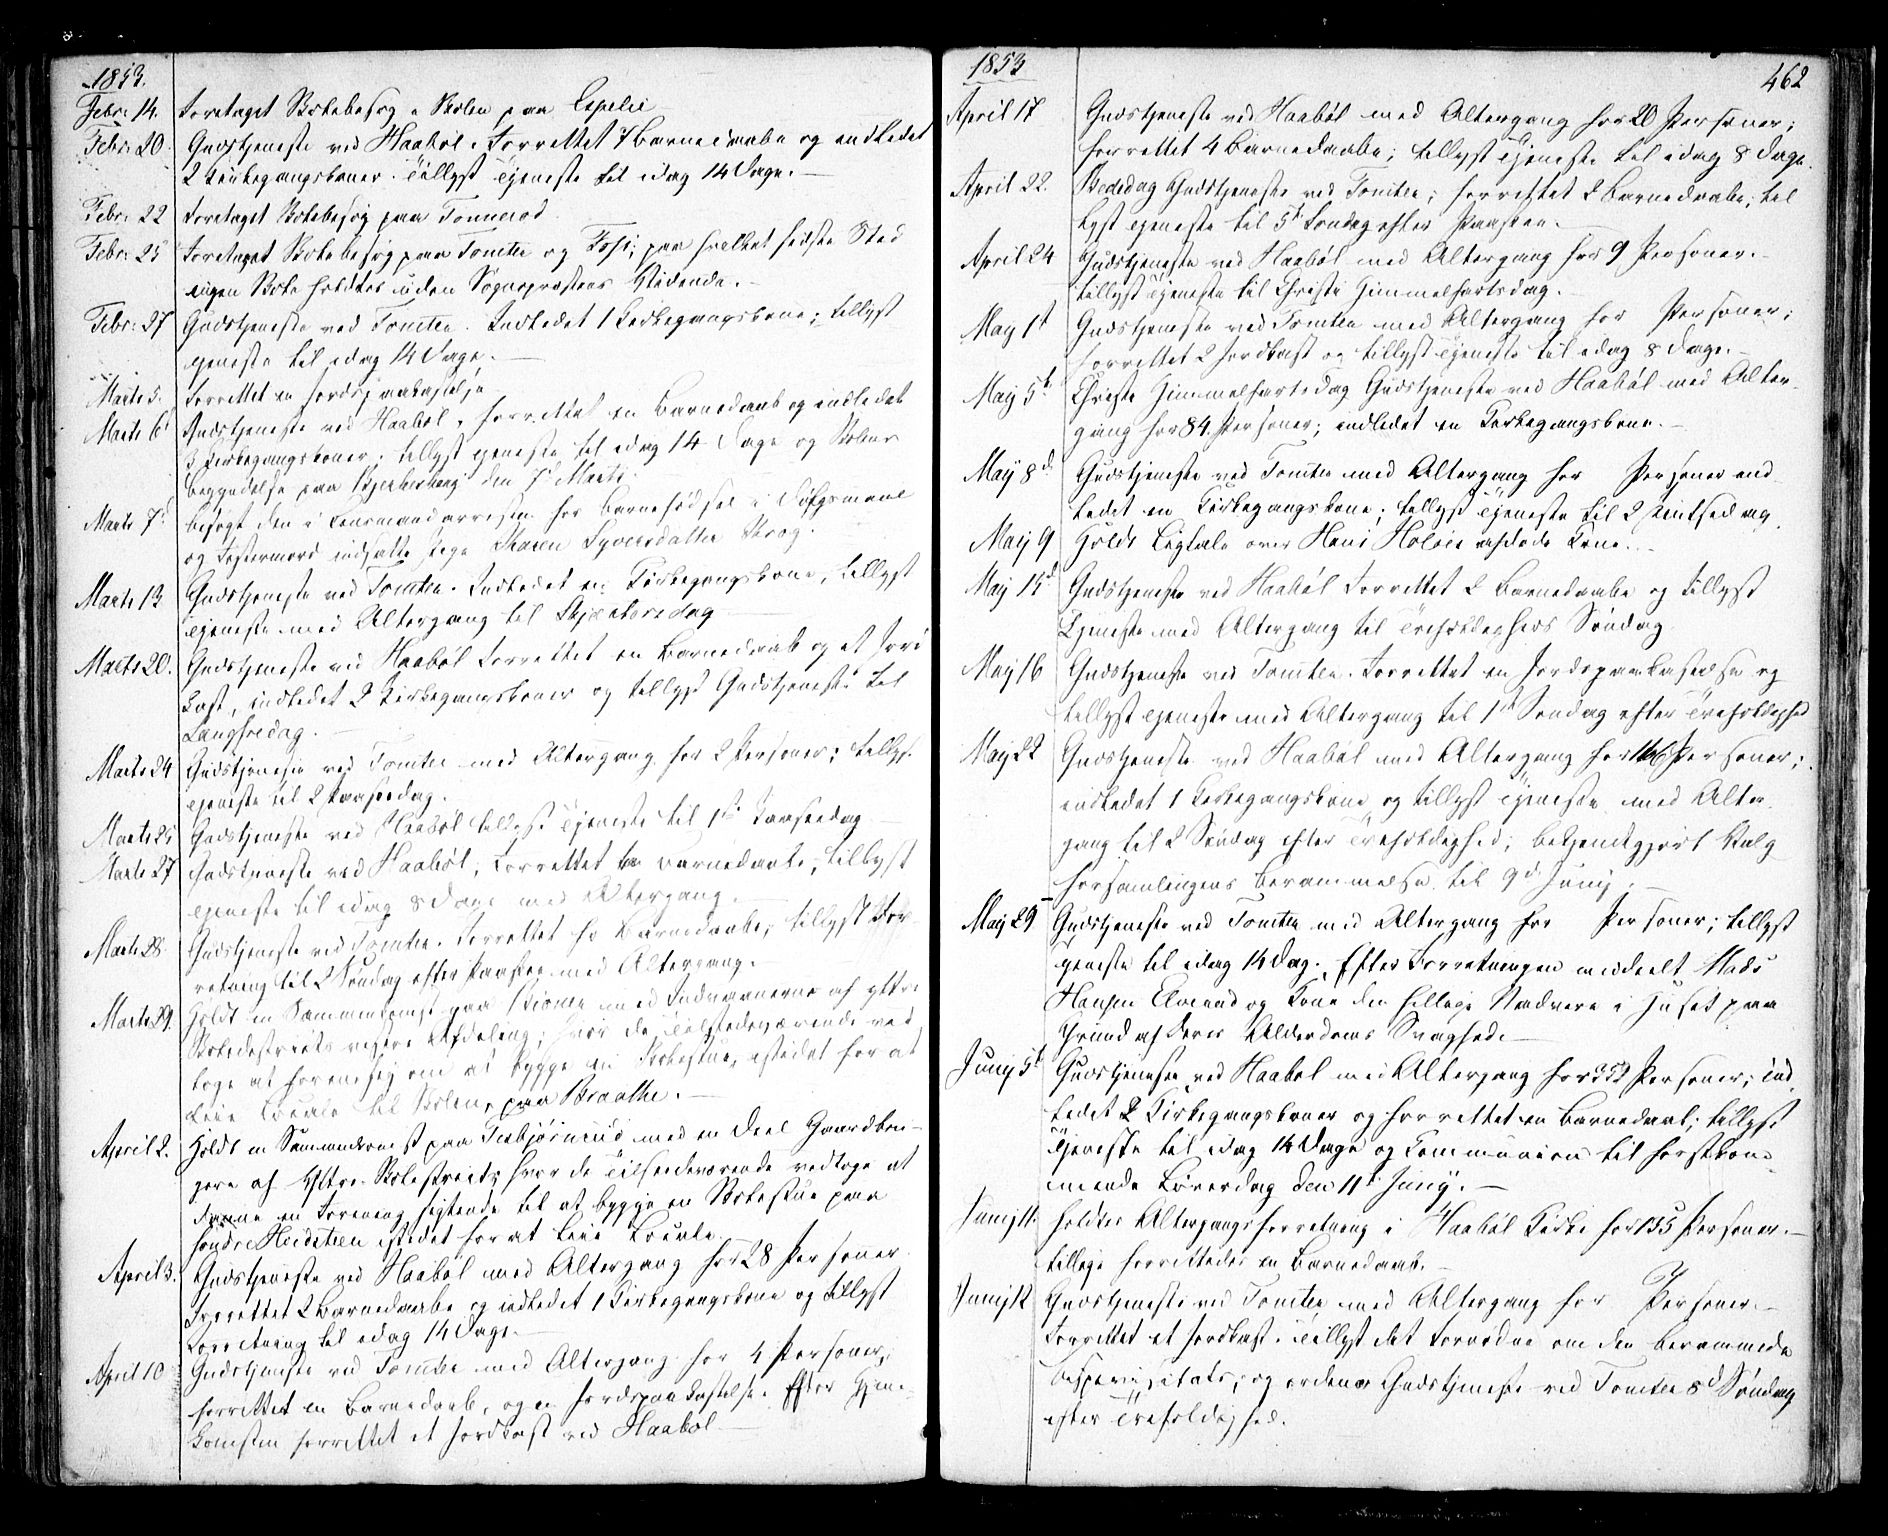 1853.
Febr: 14. Foretaget Skolebesøg i Skolen paa Espelie
Febr: 20. Gudstjeneste ved Haabøl. Forrettet 7 Barnedaabe og indledet
2 Kirkegangskoner. Tillyst Tjeneste til idag 14 Dage.
Febr: 22 Foretaget Skolebesøg paa Tonnerød
Febr: 25 Foretaget Skolebesøg paa Tomter og Foss; paa hvilket sidste Sted
ingen Skole holdtes uden Sognepræstens Vidende.
Febr: 27 Gudstjeneste ved Tomter. Indledet 1 Kirkegangskone; tillyst
Tjeneste til idag 14 Dage.
Marts 5. Forrettet en Jordspaakastelse
Marts 6 Gudstjeneste ved Haabøl, forrettet en Barnedaab og indledet
3 Kirkegangskoner; tillyst Tjeneste til idag 14 Dage og Skolens
Begyndelse paa den 7d Marts.
Marts 7d besøgt den i Lensmandarresten for Barnefødsel i Dølgsmaal
og Fostermord indsatte Pige Karen Syversdatter Krog.
Marts 13 Gudstjeneste ved Tomter. Indledet en Kirkegangskone, tillyst
Tjeneste med Altergang til Skjærtorsdag
Marts 20. Gudstjeneste ved Haabøl forrettet en Barnedaab og et Jord
kast, indledet 2 Kirkegangskoner og tillyst Gudstjeneste til
Langfredag.
Marts 24 Gudstjeneste ved Tomter med Altergang for 2 Personer; tillyst
Tjeneste til 2 Paaskedag.
Marts 25 Gudstjeneste ved Haabøl tillyst Tjeneste til 1ste Paaskedag
Marts 27 Gudstjeneste ved Haabøl; forrettet Barnedaabe; tillyst
Tjeneste til idag 8 Dage med Altergang.
Marts 28 Gudstjeneste ved Tomter. Forrettet Barnedaabe; tillyst For
retning til 2 Søndag efter Paaske med Altergang.
Marts 29. Holdt en Sammenkomst paa med Indvaanerne af yttre
Skoledistricts vestre Afdeling; hvor de Tilstedeværende ved
toge at forene sig om at bygge en Skolestue, istedet for at
leie Locale til Skolen, paa Braathe.
April 2. Holdt en Sammenkomst paa Torbjørnrud med en Deel Gaardbru-
gere af Yttre Skoledistrict; hvor de Tilstedeværende vedtoge at
danne en Forening sigtende til at bygge en Skolestue paa
søndre Heidsteen istedet for at leie Locale.
April 3. Gudstjeneste ved Haabøl med Altergang for 28 Personer
Forrettet 2 Barnedaabe og indledet 1 Kirkegangskone og tillyst
Forretning til idag 14 Dage.
April 10 Gudstjeneste ved Tomter med Altergang for 4 Personer;
forrettet en Barnedaab, og en Jordspaakastelse. Efter Hjem-
komsten forrettet et Jordkast ved Haabøl
1853
462
April 17 Gudstjeneste ved Haabøl med Altergang for 20 Personer;
forrettet 4 Barnedaabe; tillyst Tjeneste til idag 8 Dage.
April 22. Bededag Gudstjeneste ved Tomter; forrettet 2 Barnedaabe; til
lyst Tjeneste til 5te Søndag efter Paaske.
April 24 Gudstjeneste ved Haabøl med Altergang for 9 Personer.
tillyst Tjeneste til Christi Himmelfartsdag.
May 1st Gudstjeneste ved Tomter med Altergang for Personer;
forrettet 2 Jordkast og tillyst Tjeneste til idag 8 Dage.
May 5te Christi Himmelfartsdag Gudstjeneste ved Haabøl med Alter-
gang for 84 Personer; indledet en Kirkegangskone.
May 8d Gudstjeneste ved Tomter med Altergang for Personer ind
ledet en Kirkegangskone; tillyst Tjeneste til 2 Pintsedag.
May 9 Holdt Ligtale over Hans Holøes afdøde Kone.
May 15d Gudstjeneste ved Haabøl forrettet 2 Barnedaabe og tillyst
Tjeneste med Altergang til Trefoldigheds Søndag
May 16 Gudstjeneste ved Tomter. Forrettet en Jordspaakastelse og
tillyst Tjeneste med Altergang til 1st Søndag efter Trefoldighed
May 22 Gudstjeneste ved Haabøl med Altergang for 166 Personer;
indledet 1 Kirkegangskone og tillyst Tjeneste med Alter-
gang til 2 Søndag efter Trefoldighed; bekjendtgjort Valg
forsamlingens Berammelse til 9d Juny.
May 29 Gudstjeneste ved Tomter med Altergang for Personer; tillyst
Tjeneste til idag 14 Dag. Efter Forretningen meddeelt Mads
Hansen Elverud og Kone den hellige Nadvere i Huset paa
Grund af deres Alderdoms Svaghed.
Juny 5t Gudstjeneste ved Haabøl med Altergang for 352 Personer; ind
ledet 2 Kirkegangskoner og forrettet en Barnedaab; tillyst
Tjeneste til idag 14 Dage og Communion til førstkom-
mende Løverdag den 11te Juny.
Juny 11. holdtes Altergangsforretning i Haabøl Kirke for 135 Personer.
tillige forrettedes en Barnedaab.
Juny 12 Gudstjeneste ved Tomter med Altergang for Personer.
Forrettet et Jordkast. Tillyst det Fornødne om den berammede
Bispevisitats; og ordenær Gudstjeneste ved Tomter 8d Søndag
efter Trefoldighed.